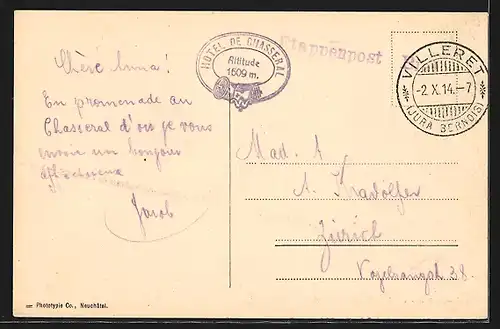 HOTEL DE CHASSERAL
Altitude
1609 m.
Etappenpost
VILLERET
-2.X.14.-7
(JURA BERNOIS)
Chère Anna!
En promenade au
Chasseral d'où je vous
envoie un bonjour
affectueux
Jacob
Mad. A
A. Kradolfer
Zürich
Vogelsangst. 38
Phototypie Co., Neuchâtel.